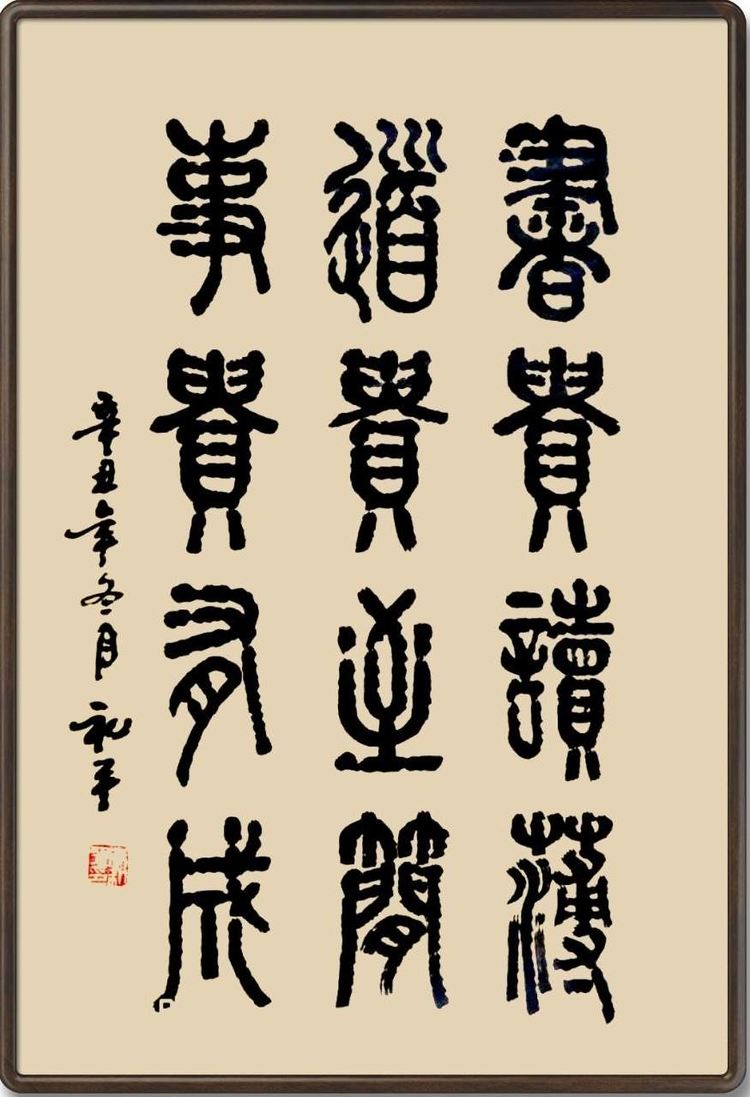 書貴讀薄
道貴至簡
事貴有成
辛丑年冬月 礼平